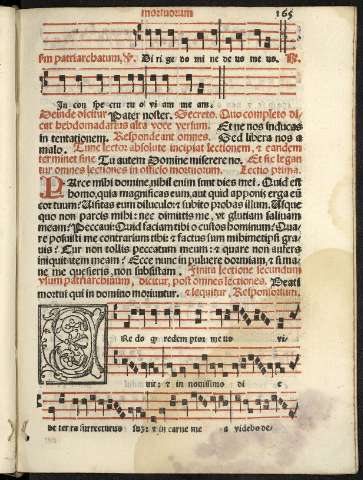 mortuorum 165
sm patriarchatum, ℣. Di ri ge do mi ne de us me us. ℟.
In con spe ctu tu o vi am me am.
Deinde dicitur Pater noster. Secreto. Quo completo di
cat hebdomadarius alta voce versum. Et ne nos inducas
in tentationem. Responde ant omnes. Sed libera nos a
malo. Tunc lector absolute incipiat lectionem, & eandem
terminet sine Tu autem Domine miserere no. Et sic legan
tur omnes lectiones in officio mortuorum. Lectio prima.
PArce mihi domine, nihil enim sunt dies mei. Quid est
homo, quia magnificas eum, aut quid apponis erga eū
cor tuum? Visitas eum diluculo: & subito probas illum. Usque
quo non parcis mihi: nec dimittis me, vt glutiam saliuam
meam? Peccaui: Quid faciam tibi o custos hominum? Qua
re posuisti me contrarium tibi: & factus sum mihimetipsi gra
uis? Cur non tollis peccatum meum: & quare non aufers
iniquitatem meam? Ecce nunc in puluere dormiam, & si ma
ne me quesieris, non subsistam. Finita lectione secundum
vsum patriarchatum, dicitur, post omnes lectiones. Beati
mortui qui in domino moriuntur. & sequitur, Responsorium.
C
Re do q redem ptor me us vi
uit: & in nouissimo di e
de ter ra surrecturus suz: & in carne me a videbo de